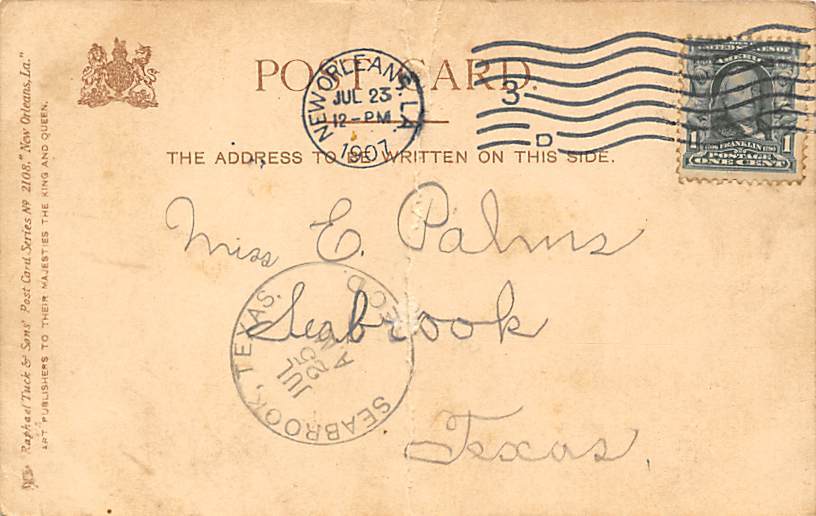 POST CARD.
NEW ORLEANS, LA.
JUL 23
12-PM
1907
3
D
UNITED STATES OF
AMERICA
1 1
1706 FRANKLIN 1790
POSTAGE
ONE CENT
THE ADDRESS TO BE WRITTEN ON THIS SIDE.
Miss E. Palms
Seabrook
Texas.
SEABROOK, TEXAS.
REC'D.
JUL
25
A.M.
Raphael Tuck & Sons' Post Card Series Nº 2108, "New Orleans, La."
ART PUBLISHERS TO THEIR MAJESTIES THE KING AND QUEEN.